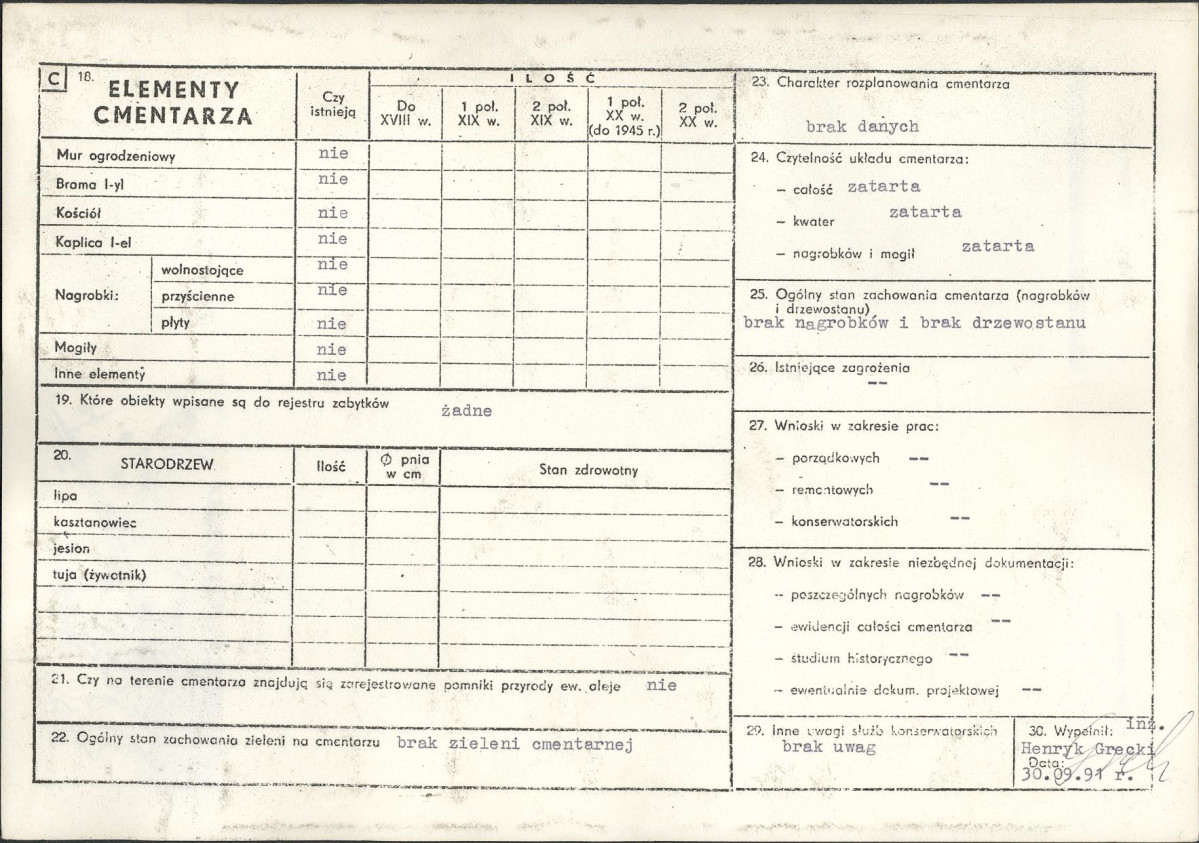 C 18. ELEMENTY CMENTARZA
Czy istnieją
ILOŚĆ
Do XVIII w.
1 poł. XIX w.
2 poł. XIX w.
1 poł. XX w. (do 1945 r.)
2 poł. XX w.
Mur ogrodzeniowy nie
Brama I-yl nie
Kościół nie
Kaplica I-el nie
Nagrobki:
wolnostojące nie
przyścienne nie
płyty nie
Mogiły nie
Inne elementy nie
19. Które obiekty wpisane są do rejestru zabytków żadne
20. STARODRZEW
Ilość
Ø pnia w cm
Stan zdrowotny
lipa
kasztanowiec
jesion
tuja (żywotnik)
21. Czy na terenie cmentarza znajdują się zarejestrowane pomniki przyrody ew. aleje nie
22. Ogólny stan zachowania zieleni na cmentarzu brak zieleni cmentarnej
23. Charakter rozplanowania cmentarza
brak danych
24. Czytelność układu cmentarza:
— całość zatarta
— kwater zatarta
— nagrobków i mogił zatarta
25. Ogólny stan zachowania cmentarza (nagrobków
i drzewostanu)
brak nagrobków i brak drzewostanu
26. Istniejące zagrożenia
--
27. Wnioski w zakresie prac:
— porządkowych --
— remontowych --
— konserwatorskich --
28. Wnioski w zakresie niezbędnej dokumentacji:
— poszczególnych nagrobków --
— ewidencji całości cmentarza --
— studium historycznego --
— ewentualnie dokum. projektowej --
29. Inne uwagi służb konserwatorskich
brak uwag
30. Wypełnił: inż.
Henryk Grecki
Data:
30.09.91 r.